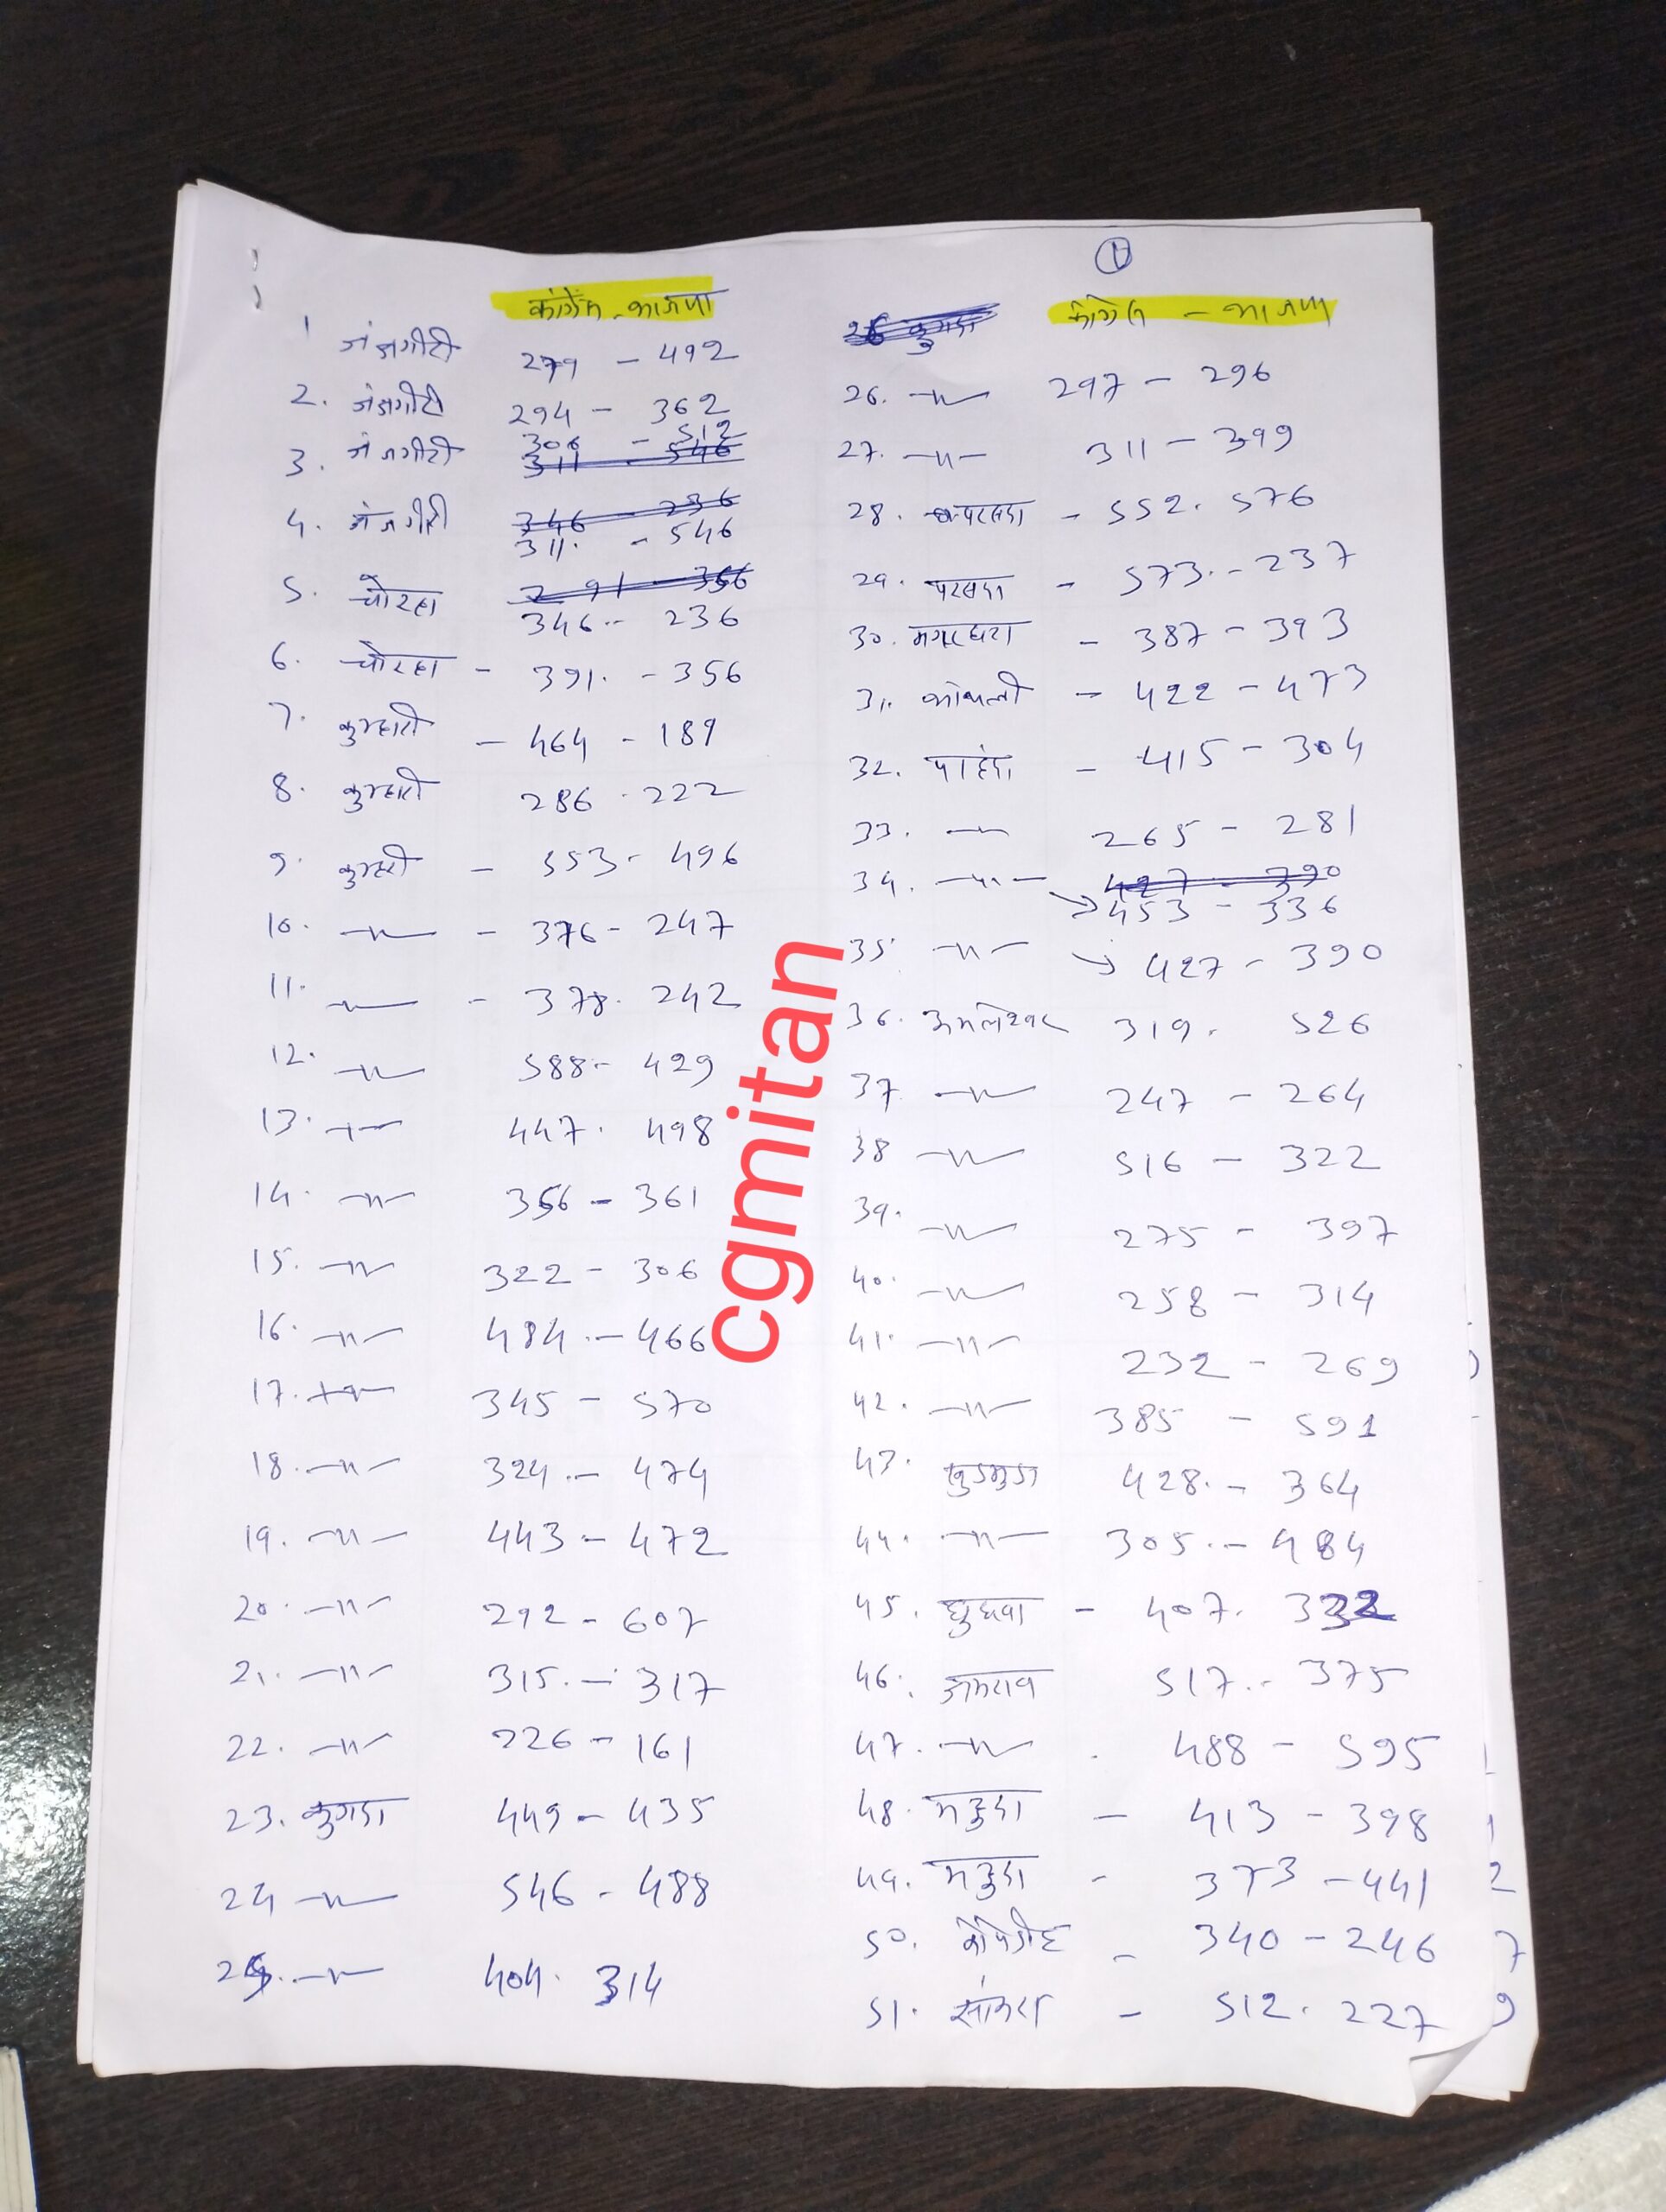 ①
कांग्रेस - भाजपा
1 जंजगीरी 279 - 492
2. जंजगीरी 294 - 362
3. जंजगीरी 306 - 512
311 - 546
4. जंजगीरी 346 - 236
311. - 546
5. चोरहा 291 - 356
346 - 236
6. चोरहा - 391. - 356
7. कुम्हारी - 464 - 189
8. कुम्हारी 286 - 222
9. कुम्हारी - 553 - 496
10. -〃- - 376 - 247
11. -〃- - 378. 242
12. -〃- 588 - 429
13. -〃- 447. 498
14. -〃- 356 - 361
15. -〃- 322 - 306
16. -〃- 484. - 466
17. -〃- 345 - 570
18. -〃- 324. - 474
19. -〃- 443 - 472
20. -〃- 292 - 607
21. -〃- 315. - 317
22. -〃- 226 - 161
23. कुगदा 449 - 435
24 -〃- 546 - 488
25. -〃- 404. 314
कांग्रेस - भाजपा
26 कुगदा
26. -〃- 297 - 296
27. -〃- 311 - 399
28. परसदा - 552. 576
29. परसदा - 573. - 237
30. मगरघटा - 387 - 393
31. - 422 - 473
32. पाहंदा - 415 - 304
33. -〃- 265 - 281
34. -〃- 427 - 390
→ 453 - 336
35 -〃- → 427 - 390
36. अमलेश्वर 319. 526
37 -〃- 247 - 264
38 -〃- 516 - 322
39. -〃- 275 - 397
40. -〃- 258 - 314
41. -〃- 232 - 269
42. -〃- 385 - 591
43. खुडमुडा 428. - 364
44. -〃- 305. - 484
45. घुघवा - 407. 332
46. 517. - 375
47. -〃- 488 - 595
48. मगुदा - 413 - 398
49. मगुदा - 373 - 441
50. - 340 - 246
51. सांकरा - 512. 227
cgmitan